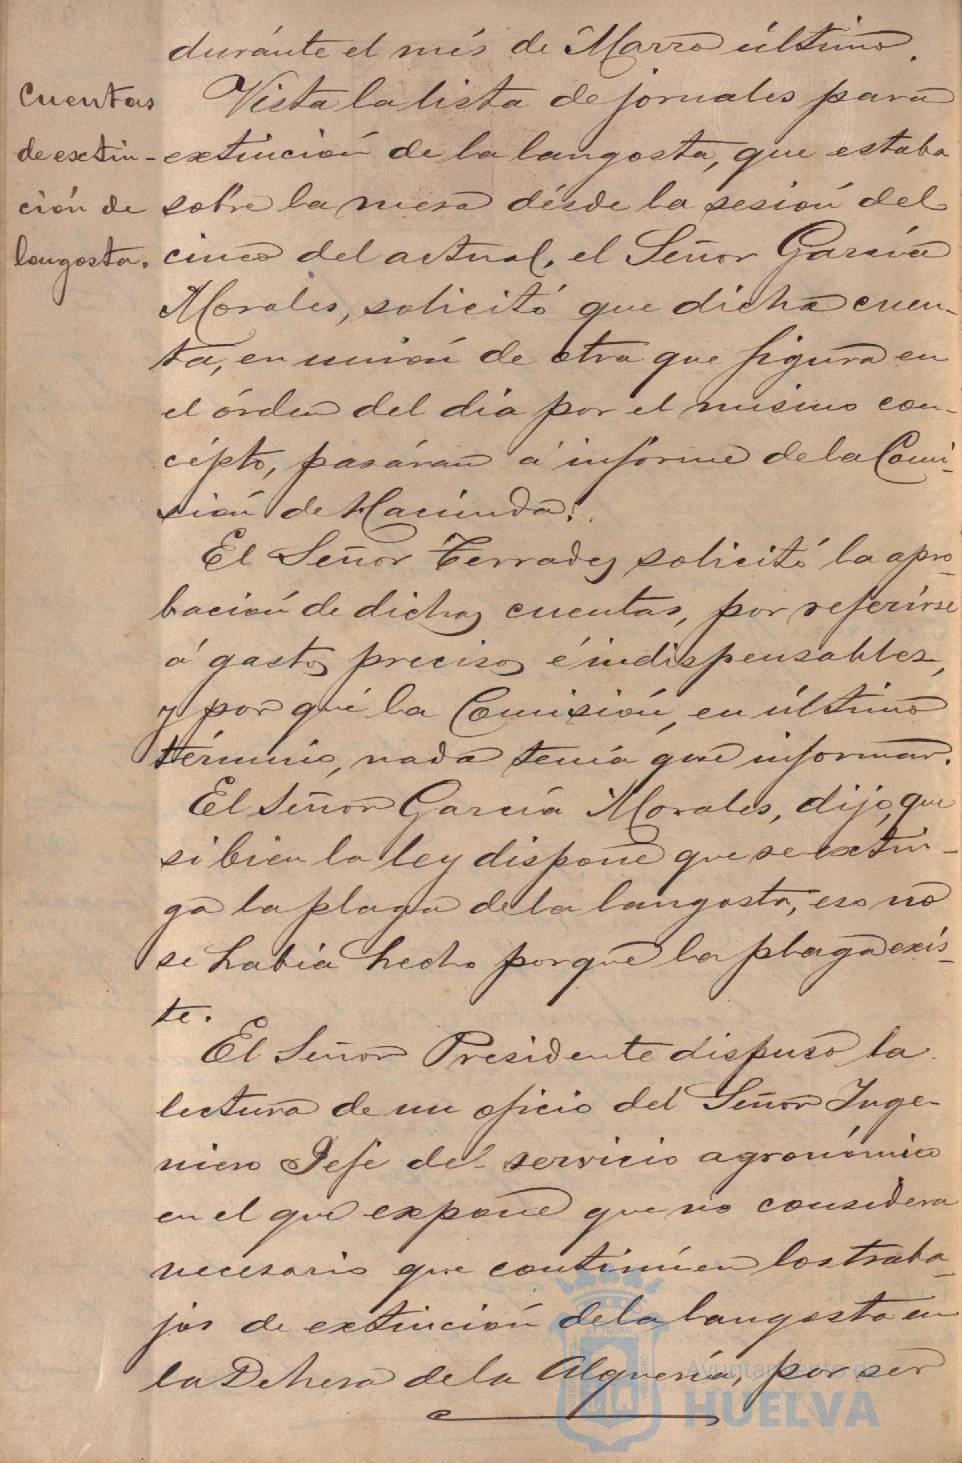 duránte el més de Marzo último.
Cuentas
de extin-
ción de
langosta.
Vista la lista de jornales para
extinción de la langosta, que estaba
sobre la mesa désde la sesión del
cinco del actual, el Señor García
Morales, solicitó que dicha cuen-
ta, en unión de otra que figura en
el órden del dia por el mismo con-
cépto, pasáran á informe de la Comi-
sión de Hacienda.
El Señor Terrades solicitó la apro-
bación de dichas cuentas, por referirse
á gastos precisos é indispensables,
y por qué la Comisión, en último
término, nada tenía que informar.
El Señor García Morales, dijo, que
si bien la ley dispone que se extin-
ga la plaga de la langosta, eso no
se había hecho porque la plaga exis-
te.
El Señor Presidente dispuso la
lectura de un oficio del Señor Inge-
niero Jefe del servicio agronómico
en el que expone que no considera
necesario que continúen los traba-
jos de extinción de la langosta en
la Dehesa de la Alquería, por ser
Ayuntamiento de
HUELVA